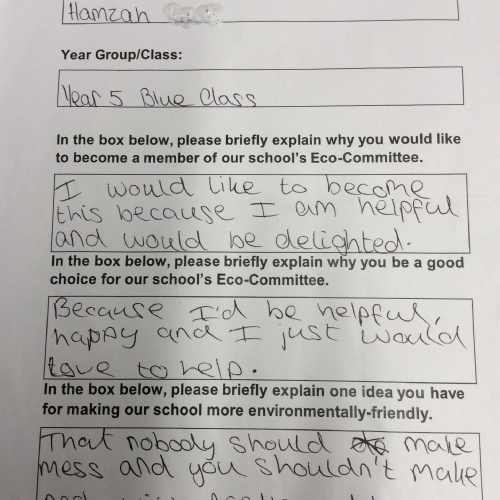 Hamzah
Year Group/Class:
Year 5 Blue Class
In the box below, please briefly explain why you would like
to become a member of our school's Eco-Committee.
I would like to become
this because I am helpful
and would be delighted.
In the box below, please briefly explain why you be a good
choice for our school's Eco-Committee.
Because I'd be helpful,
happy and I just would
love to help.
In the box below, please briefly explain one idea you have
for making our school more environmentally-friendly.
That nobody should make
mess and you shouldn't make